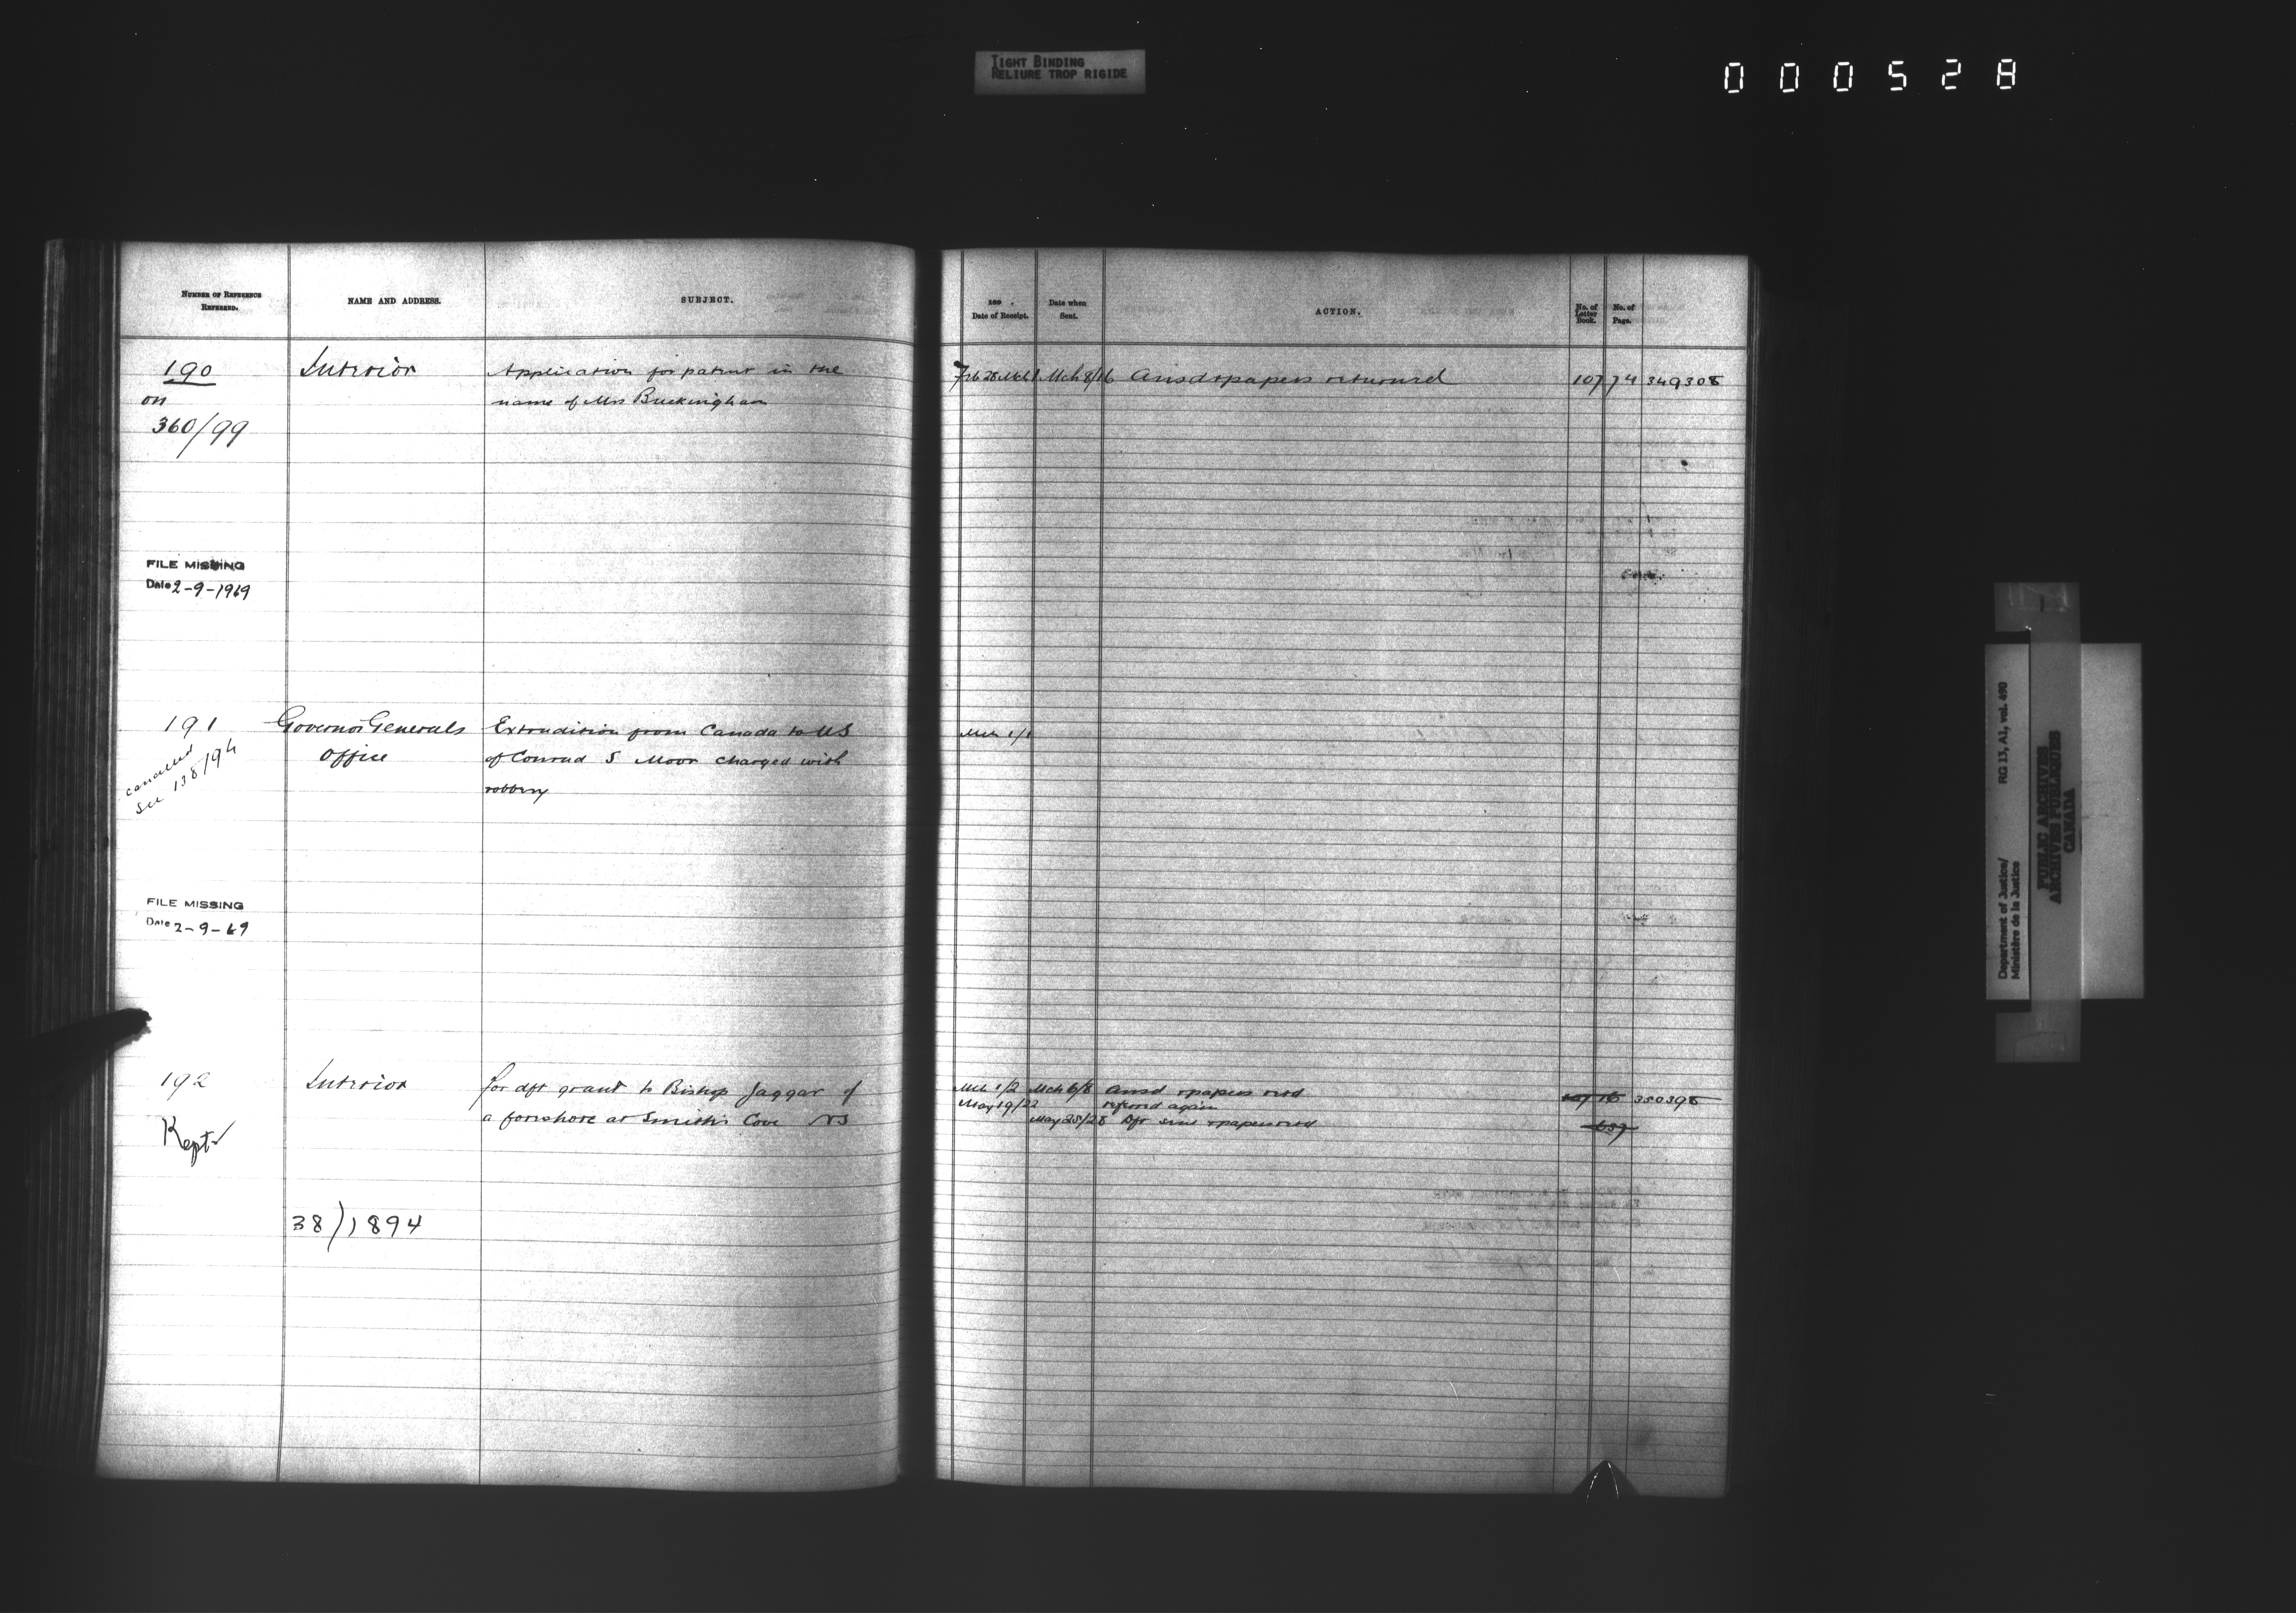 TIGHT BINDING
RELIURE TROP RIGIDE
000528
NUMBER OF REFERENCE
REFERRED.
NAME AND ADDRESS.
SUBJECT.
190
on
360/99
Interior
Application for patent in the
name of Mrs Buckingham
FILE MISSING
Date 2-9-1969
191
cancelled
see 138/94
Governor Generals
Office
Extradition from Canada to US
of Conrad S Moor charged with
robbery
FILE MISSING
Date 2-9-69
192
Kept
Interior
for dft grant to Bishop Jaggar of
a foreshore at Smith's Cove NS
38/1894
189 .
Date of Receipt.
Date when
Sent.
ACTION.
No. of
Letter
Book.
No. of
Page.
Feb 28 Mch 1 Mch 8/16 Ansd & papers returned 107 74 349308
Mch 1/1
Mch 1/2 Mch 6/8 Ansd & papers retd 107 16 350398
May 19/22 referred again
May 25/28 Dft sent & papers retd 637
Department of Justice/
Ministère de la Justice
RG 13, A1, vol. 490
PUBLIC ARCHIVES
ARCHIVES PUBLIQUES
CANADA